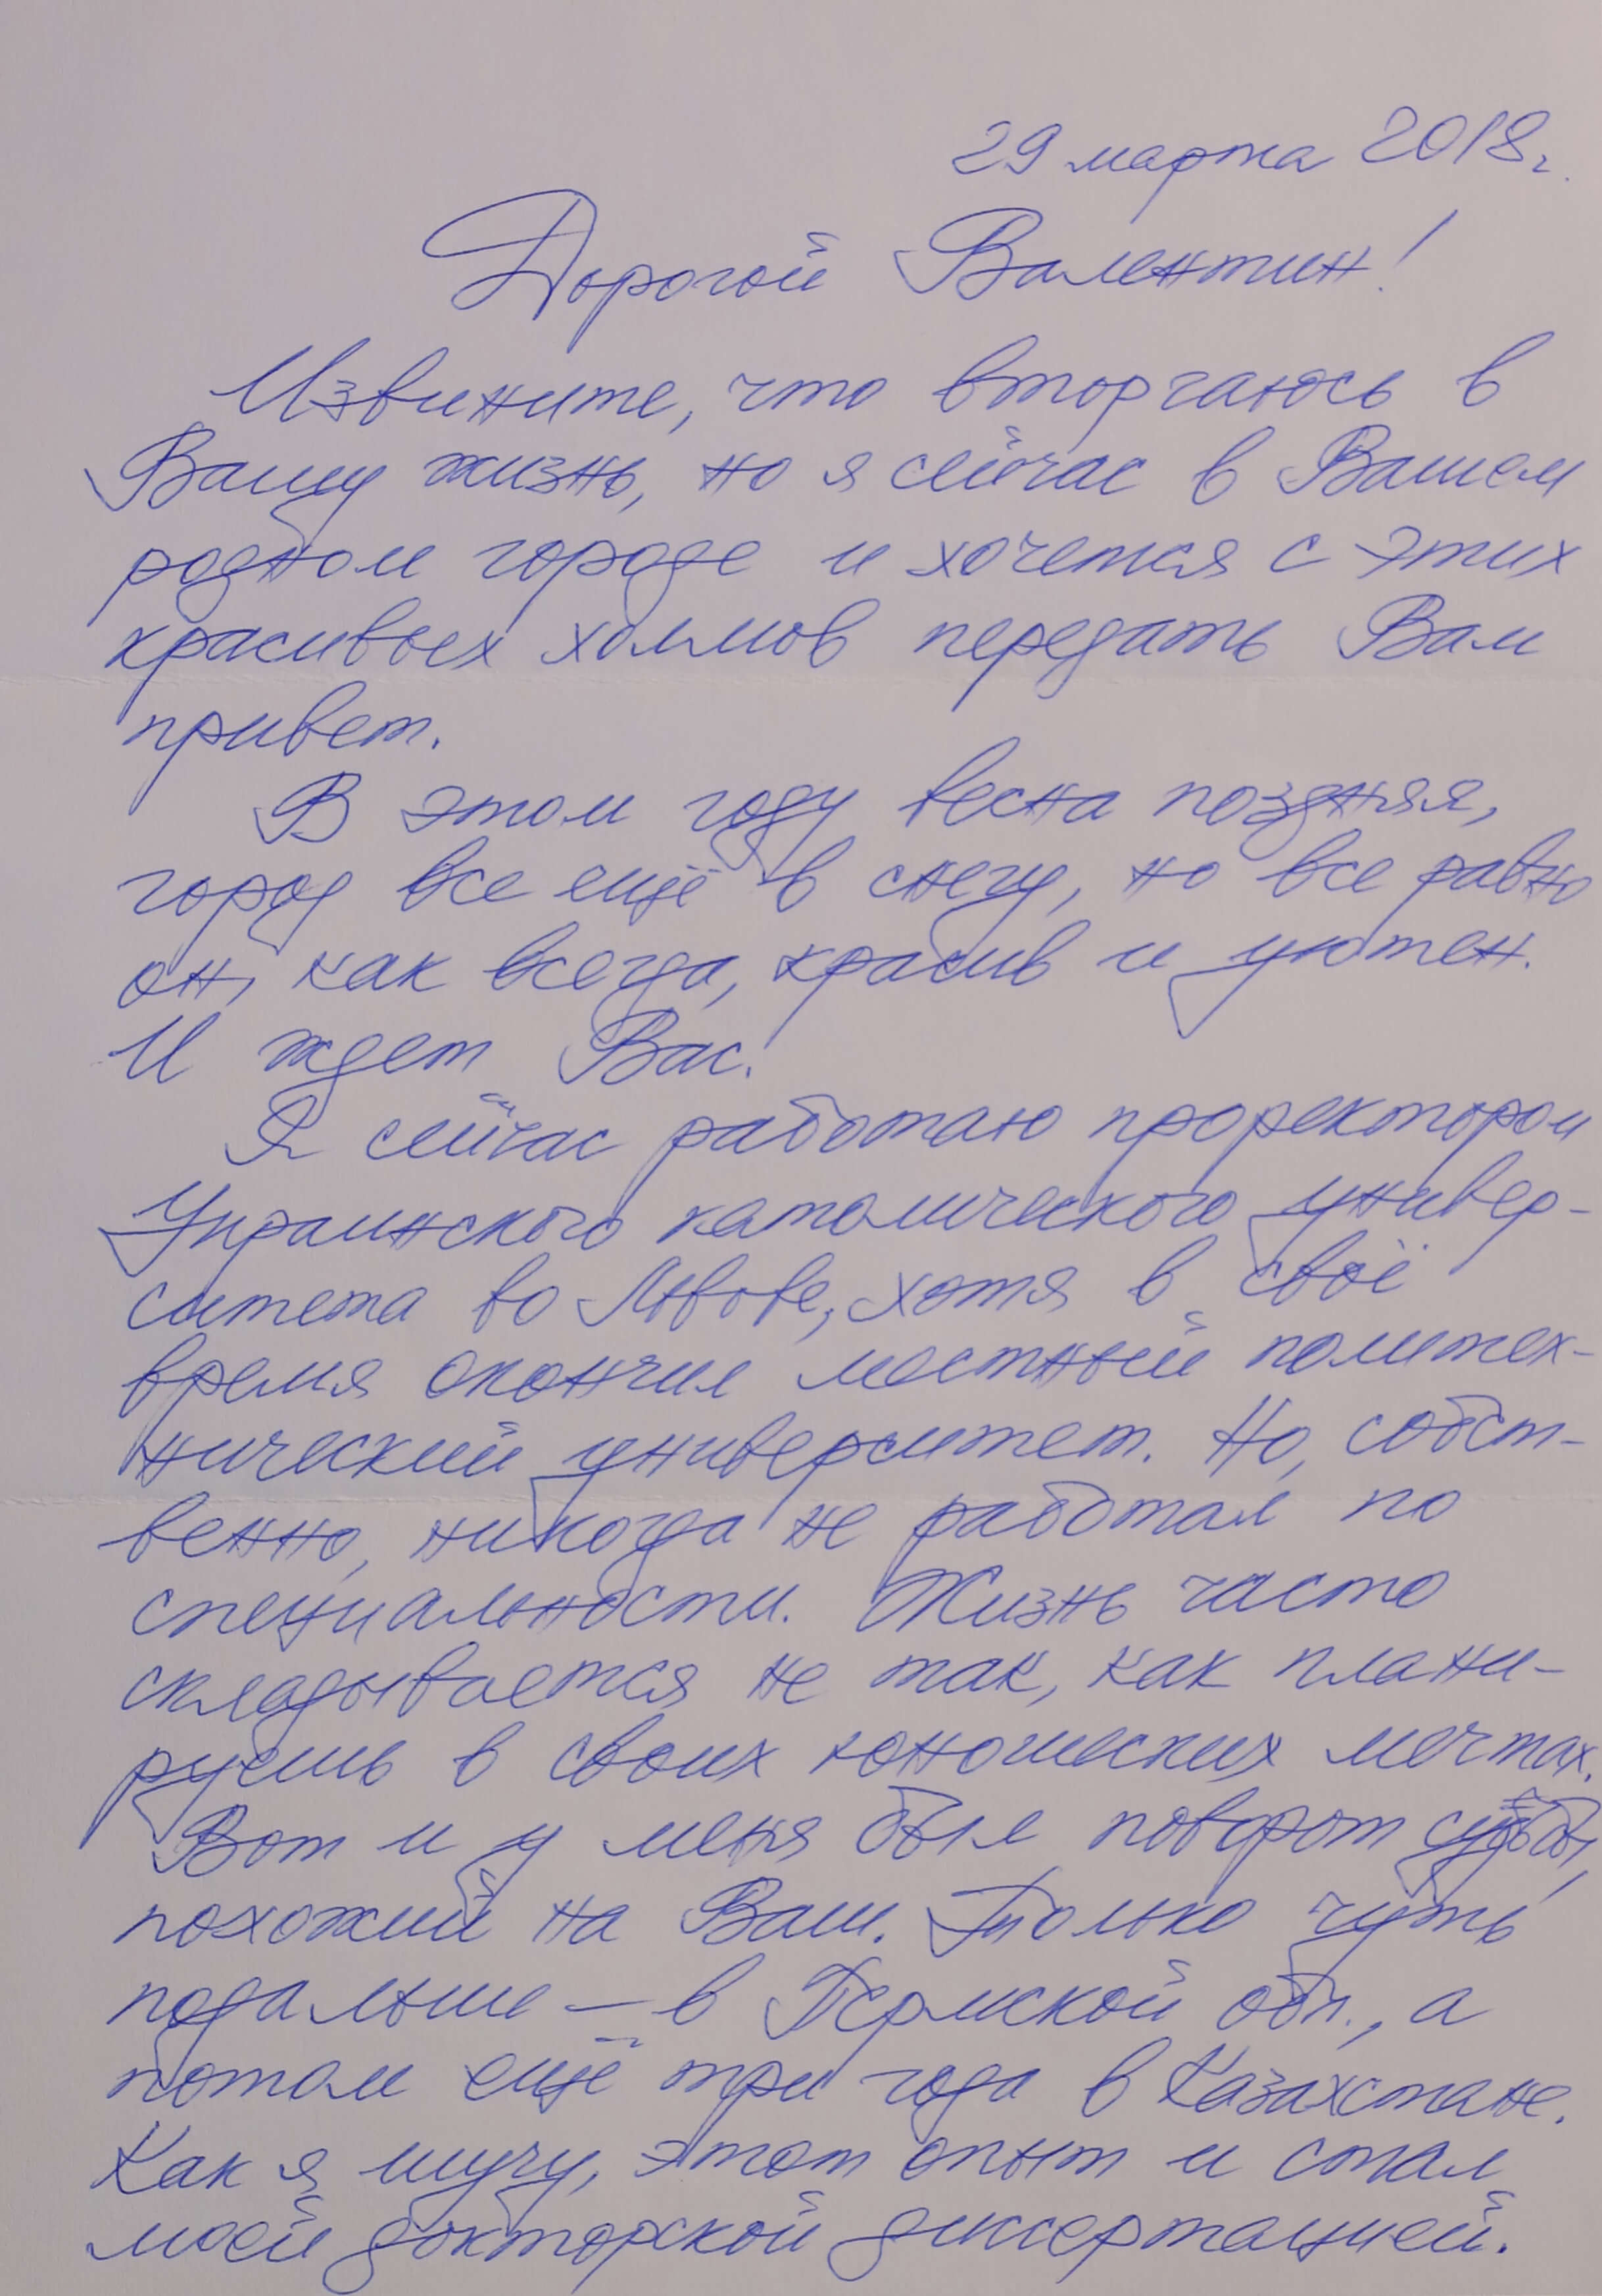 29 марта 2018г.
Дорогой Валентин!
Извините, что вторгаюсь в
Вашу жизнь, но я сейчас в Вашем
родном городе и хочется с этих
красивых холмов передать Вам
привет.
В этом году весна поздняя,
город все ещё в снегу, но все равно
он, как всегда, красив и уютен.
И ждет Вас!
Я сейчас работаю проректором
Украинского католического универ-
ситета во Львове, хотя в своё
время окончил местный политех-
нический университет. Но, собст-
венно, никогда не работал по
специальности. Жизнь часто
складывается не так, как плани-
руешь в своих юношеских мечтах.
Вот и у меня был поворот судьбы,
похожий на Ваш. Только чуть
подальше – в Пермской обл., а
потом ещё три года в Казахстане.
Как я шучу, этот опыт и стал
моей докторской диссертацией.